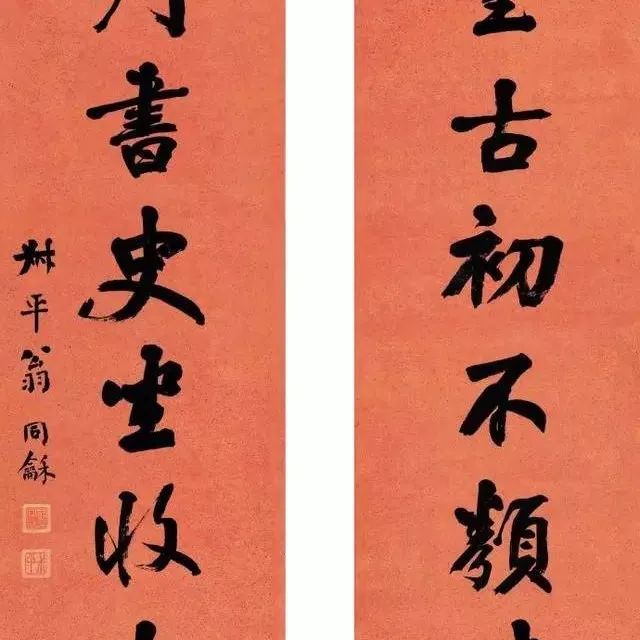 古初不類
書史坐收
叔平翁同龢